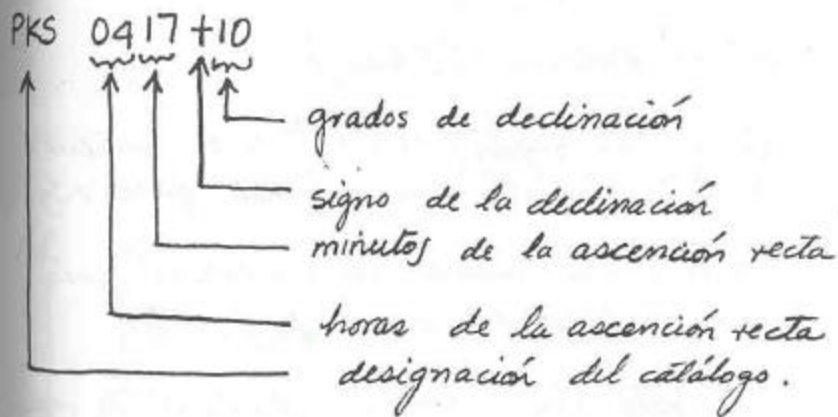 PKS 0417+10
grados de declinación
signo de la declinación
minutos de la ascención recta
horas de la ascención recta
designación del catálogo.